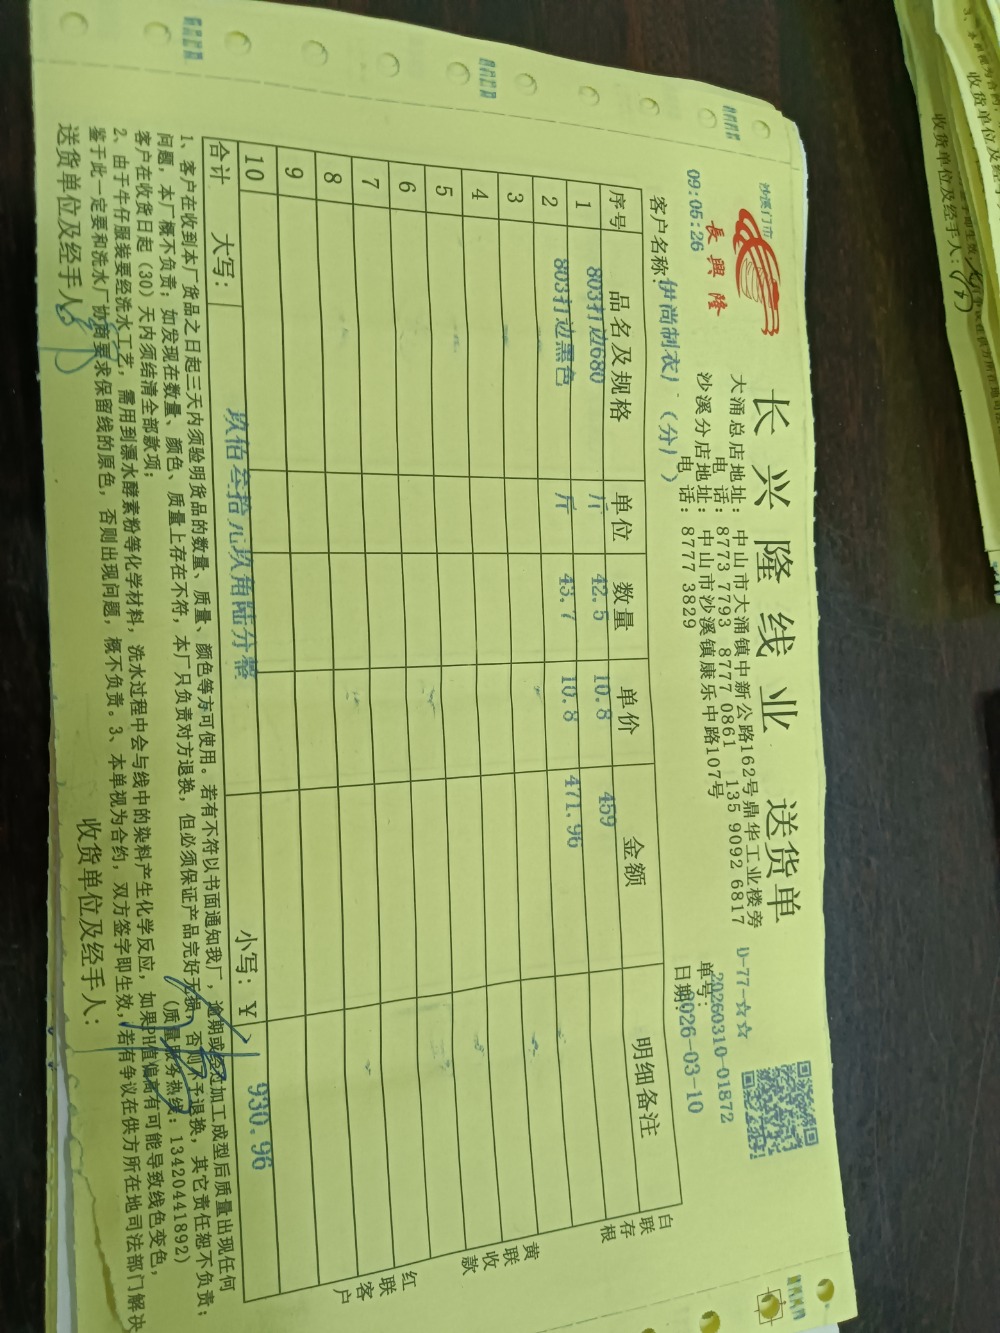 长兴隆线业 送货单
沙溪门市
長興隆
大涌总店地址：中山市大涌镇中新公路162号鼎华工业楼旁
电话：8773 7793 8777 0861 135 9092 6817
沙溪分店地址：中山市沙溪镇康乐中路107号
电话：8777 3829
D-77-☆☆
单号：20260310-01872
日期：2026-03-10
09:05:26
客户名称：伊尚制衣厂（分厂）
序号 品名及规格 单位 数量 单价 金额 明细备注
1 803打边680 斤 42.5 10.8 459
2 803打边黑色 斤 43.7 10.8 471.96
3
4
5
6
7
8
9
10
合计 大写：玖佰叁拾元玖角陆分整 小写：¥ 930.96
白联存根
黄联收款
红联客户
1、客户在收到本厂货品之日起三天内须验明货品的数量、质量、颜色等方可使用。若有不符以书面通知我厂，逾期或经过加工成型后质量出现任何
问题，本厂概不负责；如发现在数量、颜色、质量上存在不符，本厂只负责对方退换，但必须保证产品完好无损，否则不予退换，其它责任恕不负责；
客户在收货日起（30）天内须结清全部款项；
（质量服务热线：13420441892）
2、由于牛仔服装要经洗水工艺，需用到漂水酵素粉等化学材料，洗水过程中会与线中的染料产生化学反应，如果PH值偏高有可能导致线色变色，
鉴于此一定要和洗水厂协商要求保留线的原色，否则出现问题，概不负责。3、本单视为合约，双方签字即生效，若有争议在供方所在地司法部门解决
送货单位及经手人： 收货单位及经手人：
收货单位及经手人：